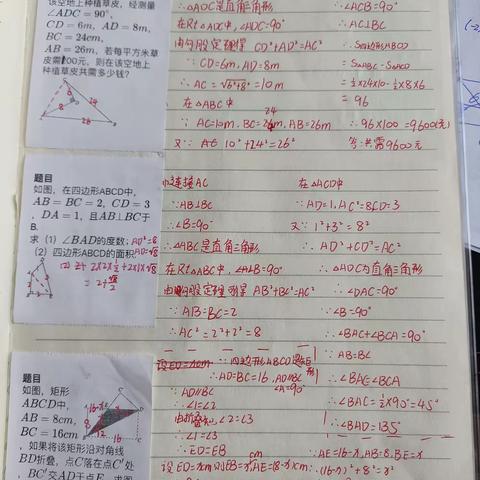 该空地上种植草皮，经测量
∠ADC = 90°,
CD = 6m, AD = 8m,
BC = 24cm,
AB = 26m, 若每平方米草
皮需100元，则在该空地上
种植草皮共需多少钱?
∴△ADC是直角三角形
在Rt△ADC中,∠ADC=90°
由勾股定理得 CD²+AD²=AC²
∵CD=6m, AD=8m
∴AC=√6²+8²=10m
在△ABC中
AC=10m, BC=24m, AB=26m
又∵ 10²+24²=26²
∴∠ACB=90°
∴AC⊥BC
∴S四边形ABCD
=S△ABC-S△ACD
=½×24×10-½×8×6
=96
∴96×100=9600(元)
答:共需9600元
题目
如图，在四边形ABCD中，
AB = BC = 2, CD = 3
, DA = 1, 且AB⊥BC于
B.
求 (1) ∠BAD的度数;
(2) 四边形ABCD的面积
2×2×½+2×1×√8
连接AC
∵AB⊥BC
∴∠B=90°
∴△ABC是直角三角形
在Rt△ABC中,∠B=90°
由勾股定理得 AB²+BC²=AC²
∵AB=BC=2
∴AC²=2²+2²=8
在△ACD中
∵AD=1, AC²=8, CD=3
又∵1²+3²=8²
∴AD²+CD²=AC²
∴△ADC为直角三角形
∴∠DAC=90°
∵∠B=90°
∴∠BAC+∠BCA=90°
∵AB=BC
∴∠BAC=∠BCA
∴∠BAC=½×90°=45°
∴∠BAD=135°
题目
如图，矩形
ABCD中,
AB = 8cm,
BC = 16cm
, 如果将该矩形沿对角线
BD折叠，点C落在点C′处
, BC′交AD于点E
∵四边形ABCD是矩形
∴AD=BC=16, AD∥BC
∠A=90°
∵AD∥BC
∴∠1=∠2
由折叠知∠2=∠3
∴∠1=∠3
∴ED=EB
∴AE=16-x, AB=8, BE=x
∴(16-x)²+8²=x²